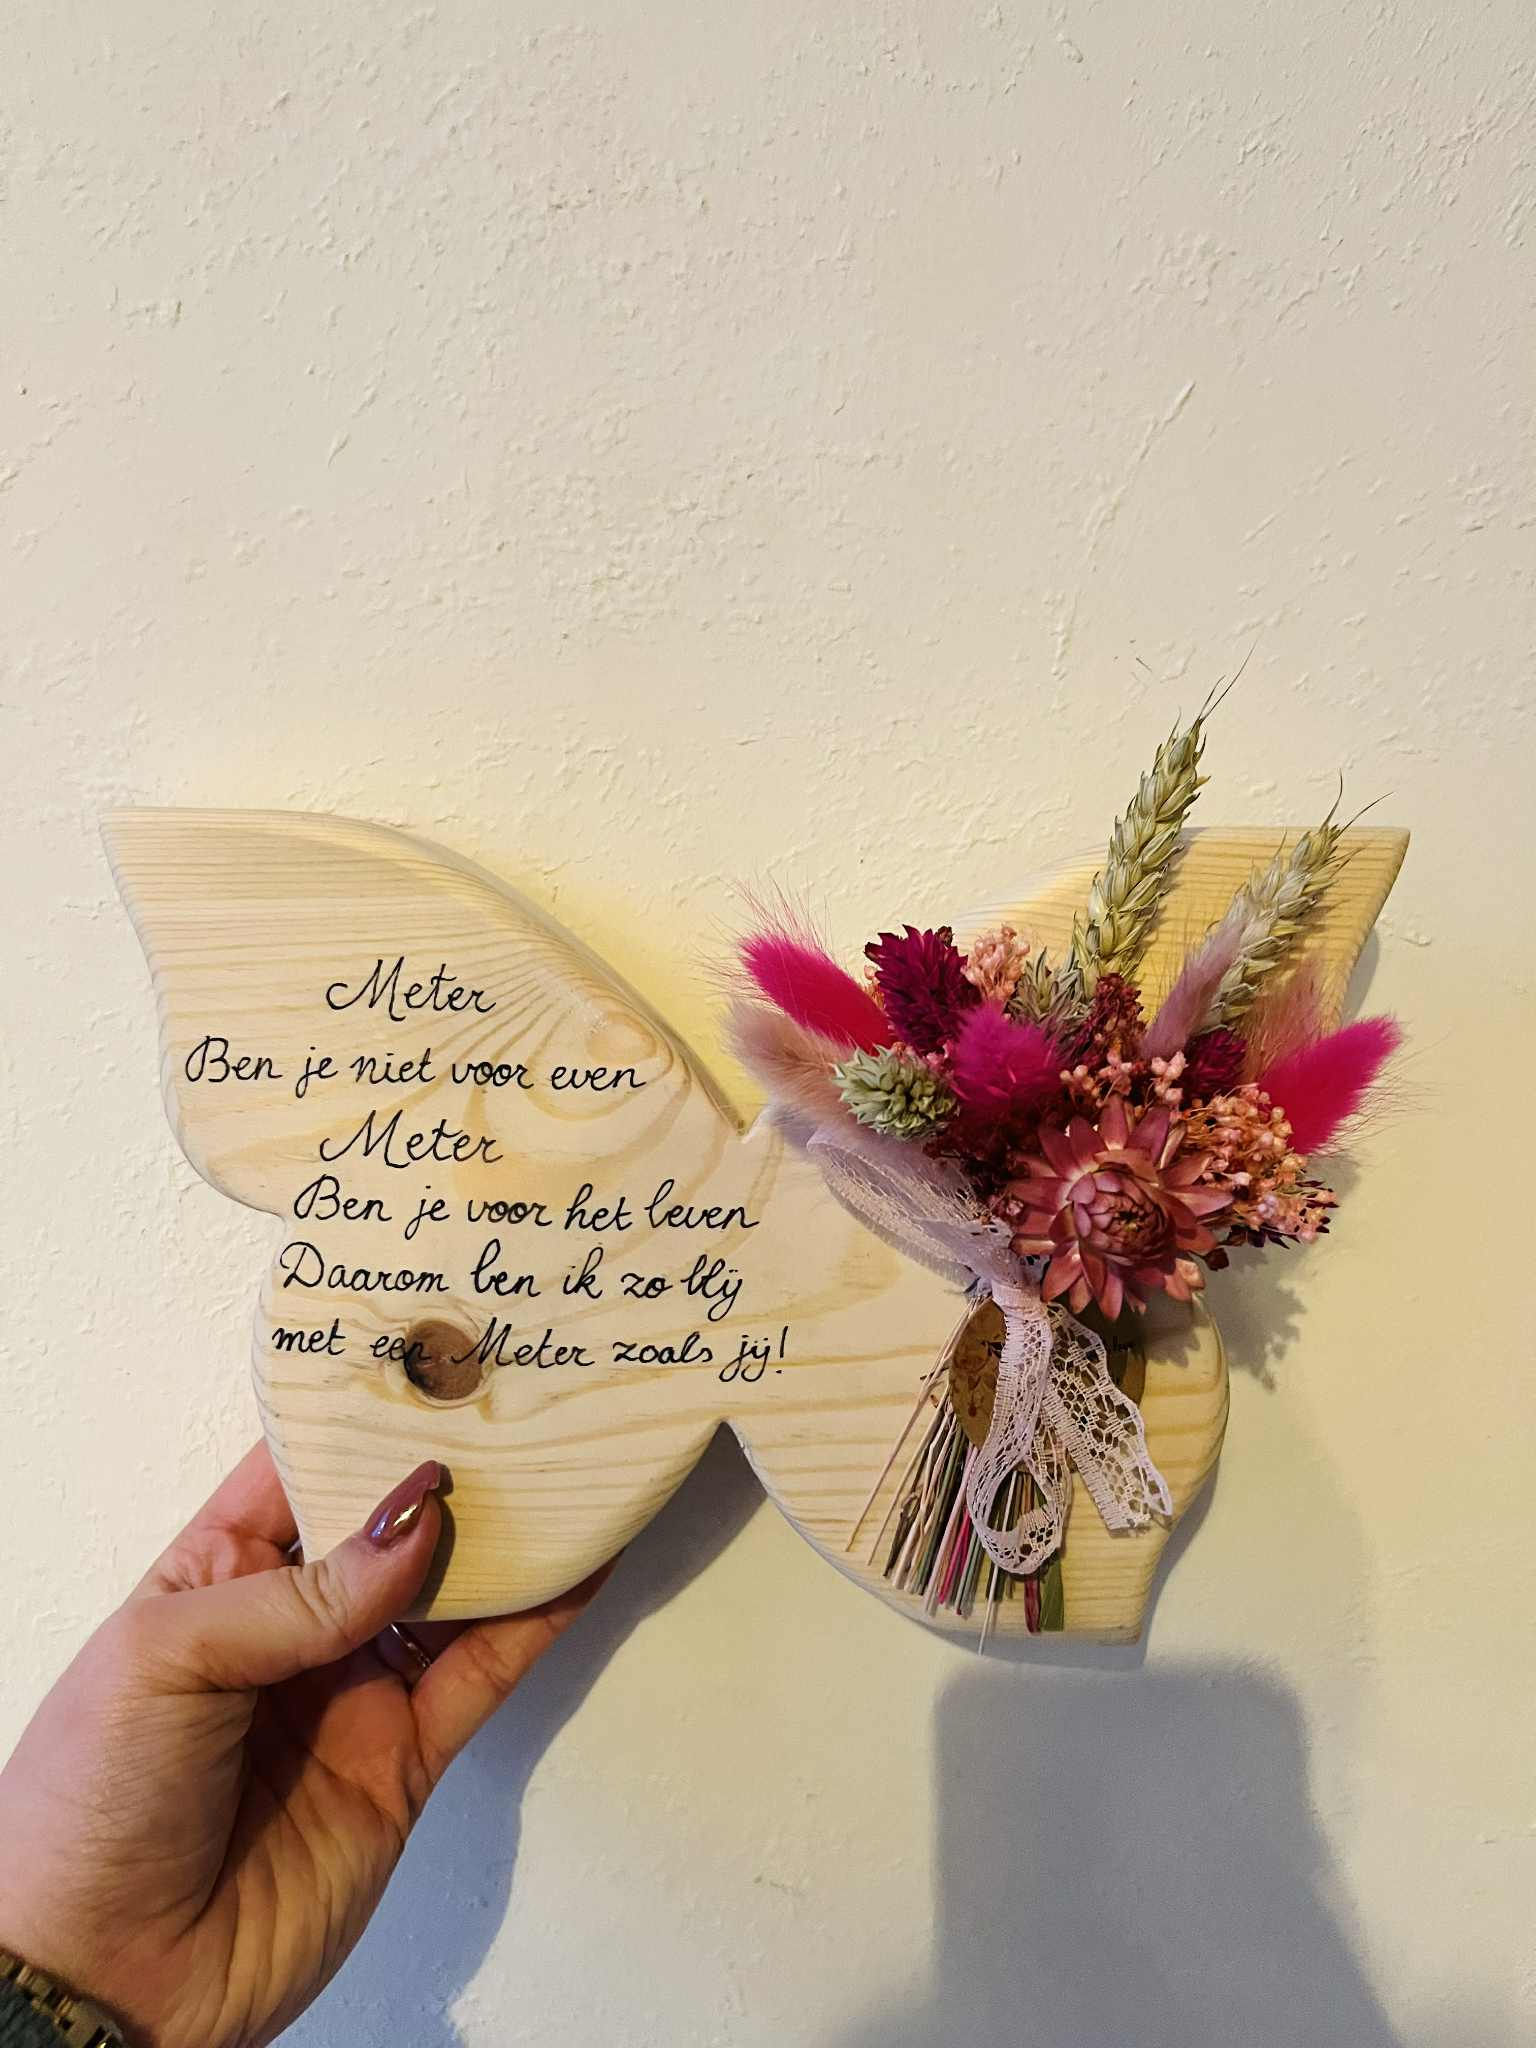 Meter
Ben je niet voor even
Meter
Ben je voor het leven
Daarom ben ik zo blij
met een Meter zoals jij!